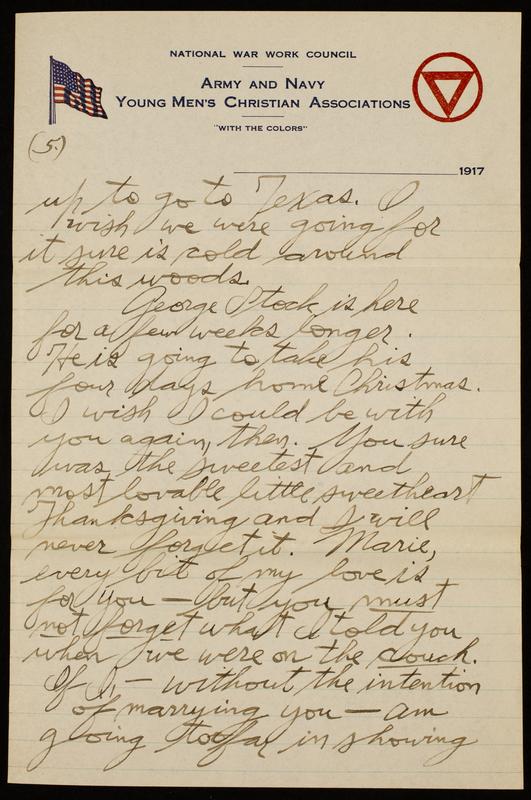 NATIONAL WAR WORK COUNCIL
ARMY AND NAVY
YOUNG MEN'S CHRISTIAN ASSOCIATIONS
"WITH THE COLORS"
(5.)
1917
up to go to Texas. I
wish we were going for
it sure is cold around
this woods.
George Stock is here
for a few weeks longer.
He is going to take his
four days home Christmas.
I wish I could be with
you again, then. You sure
was the sweetest and
most lovable little sweetheart
Thanksgiving and I will
never forget it. Marie,
every bit of my love is
for you — but you must
not forget what I told you
when we were on the couch.
If I — without the intention
of marrying you — am
going too far in showing